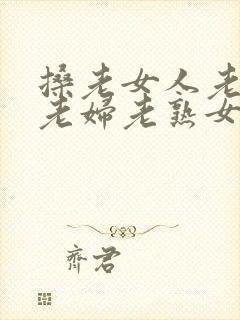 搡老女人老
老婦老熟女
齊君